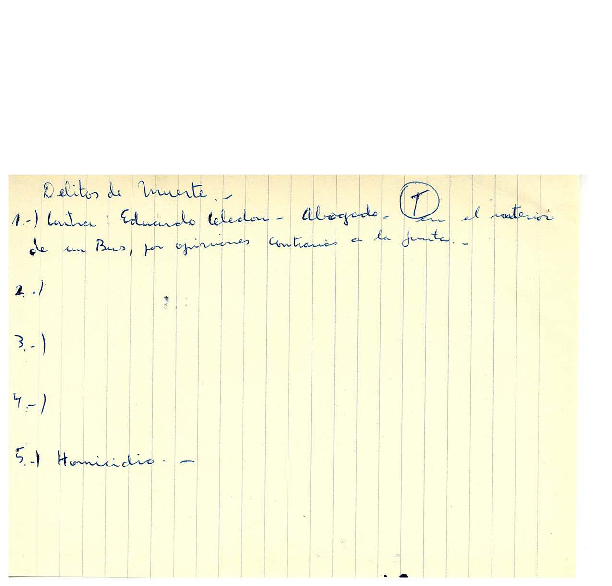 Delitos de Muerte.-
1.-) Contra: Eduardo Celedon - Abogado - en el interior
de un Bus, por opiniones contrarias a la junta.-
2.-)
3.-)
4.-)
5.-) Homicidio. -